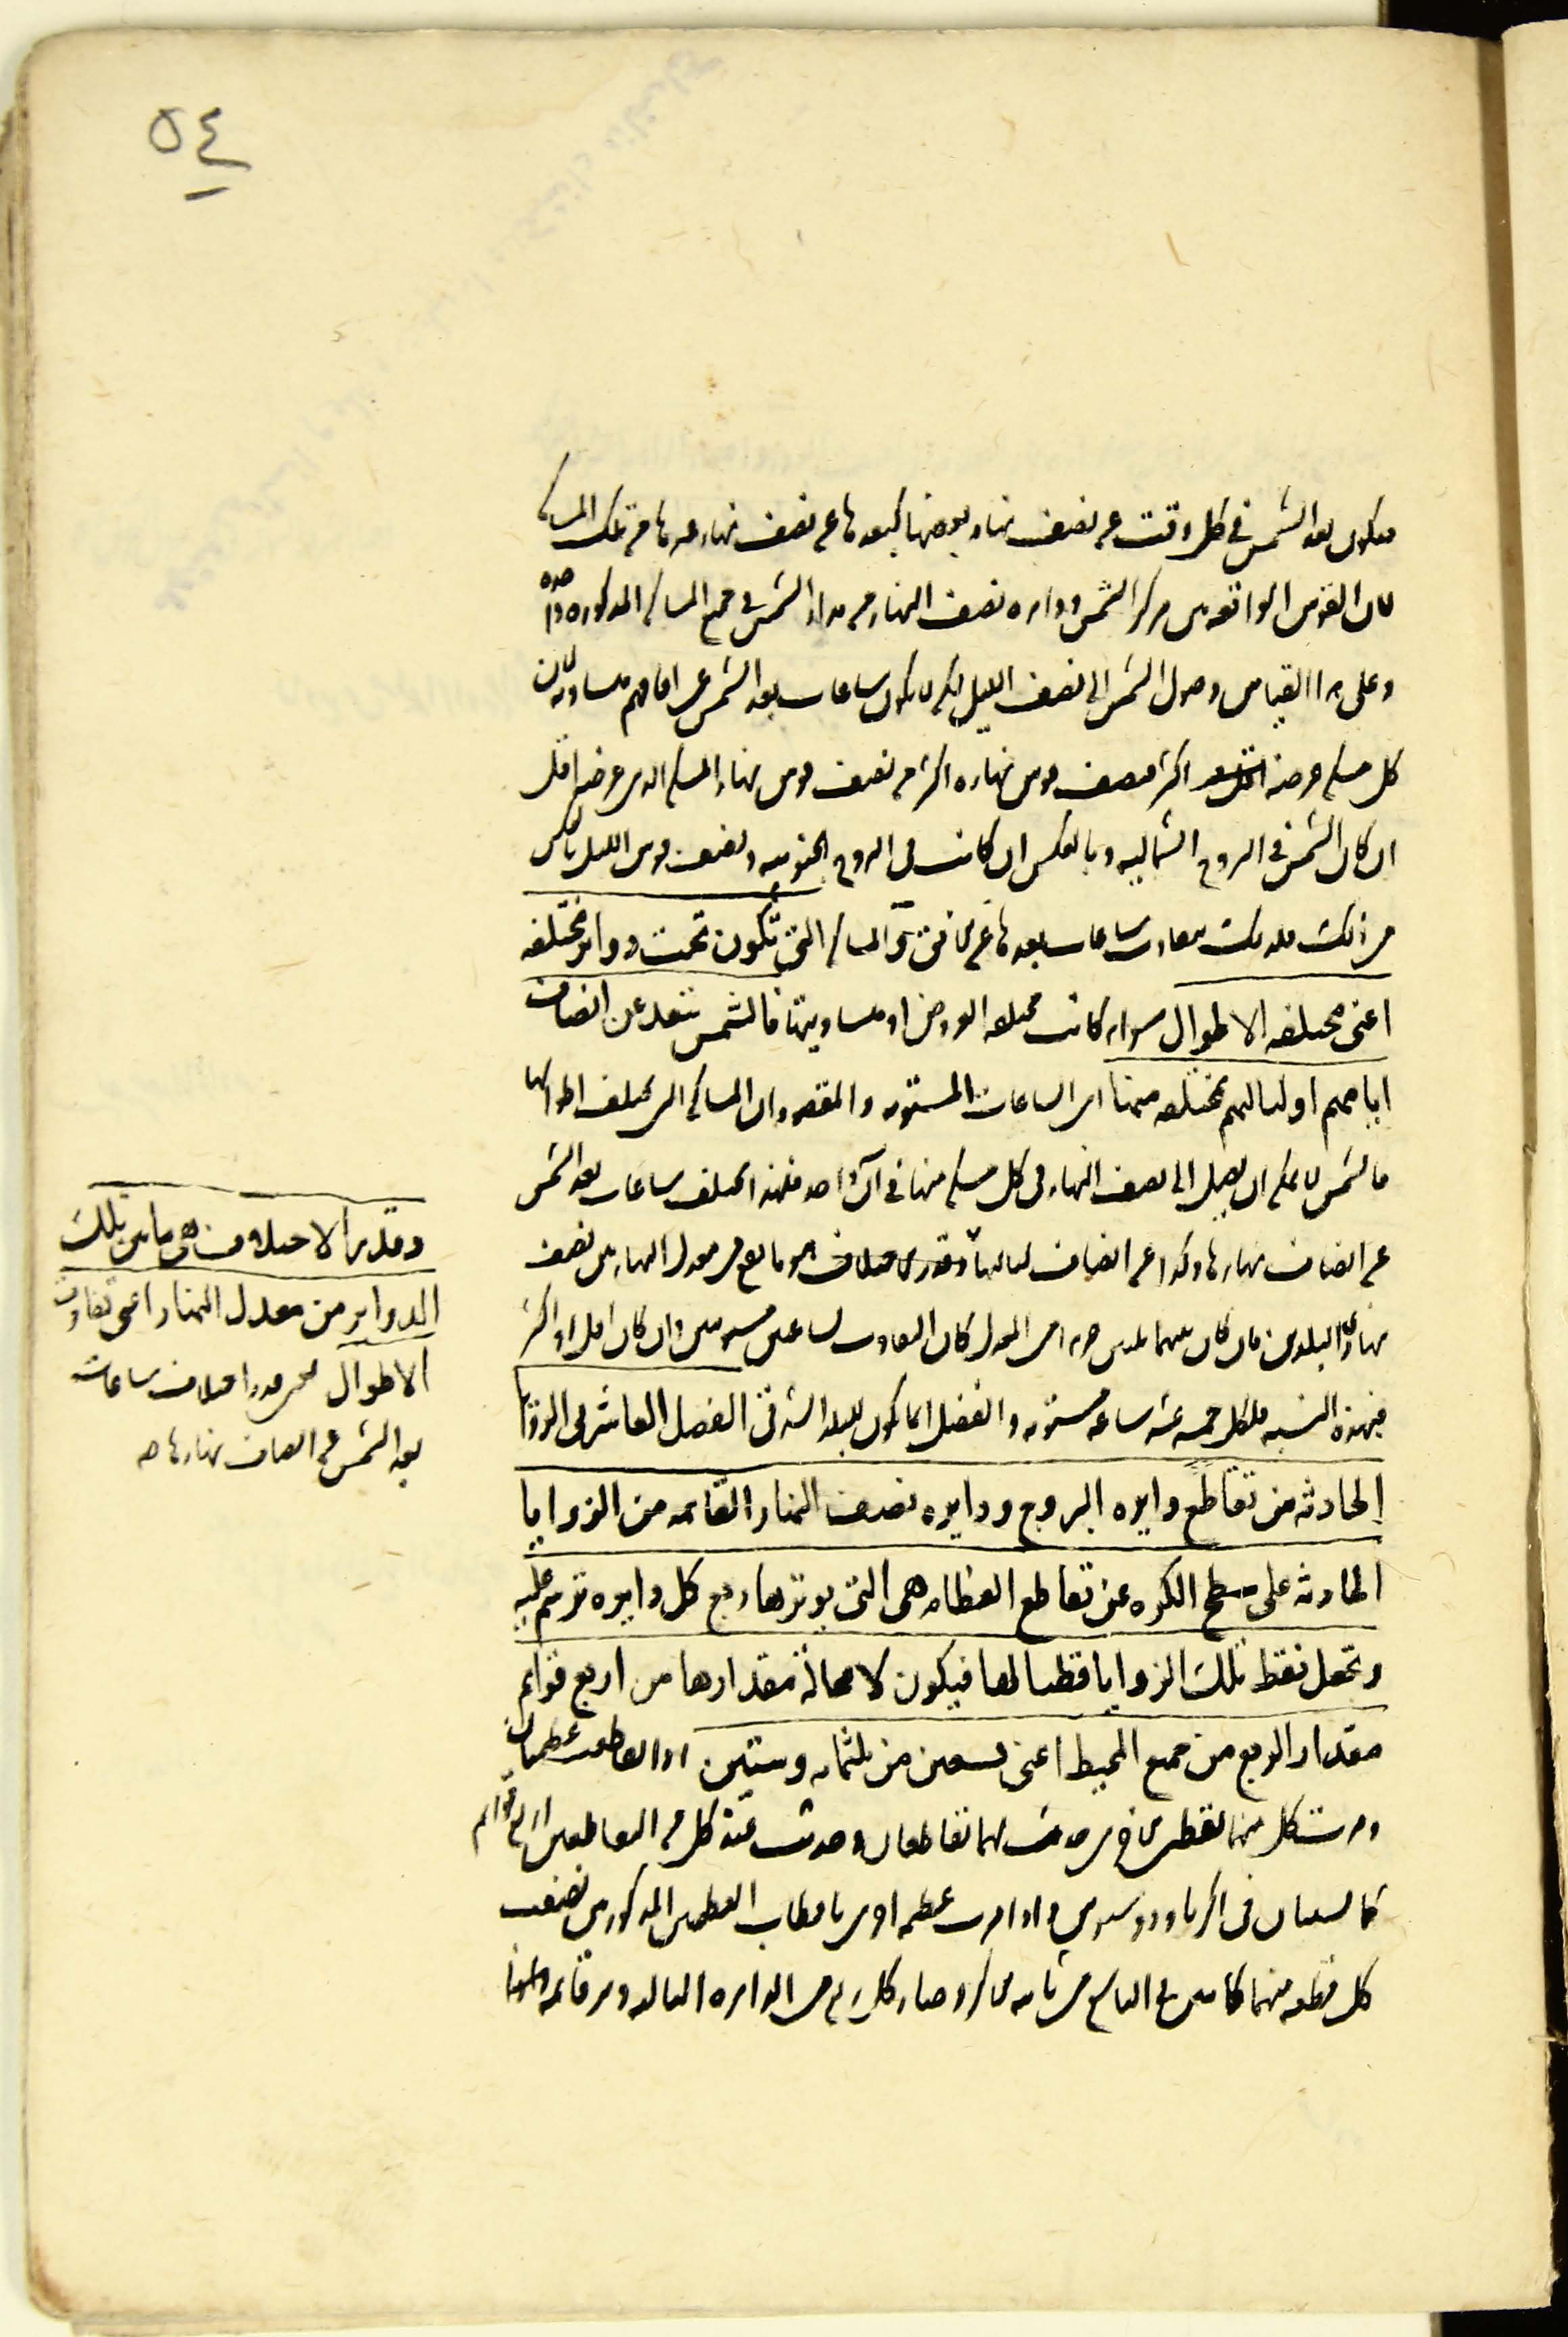 ٥٤
فيكون بعد الشمس في كل وقت عن نصف نهار بعضها كبعدها عن نصف نهار غيرها من تلك المساكن
لان القوس الواقعه بين مركز الشمس ودايره نصف النهار من مدار الشمس في جميع المساكن المذكوره واحده
وعلى هذا القياس وصول الشمس الى نصف الليل لكن لا يكون ساعات بعد الشمس عن افاقهم متساويه لان
كل مسكن عرضه اكثر فنصف قوس نهاره اكثر من نصف قوس نهار المسكن الذى عرضه اقل
ان كان الشمس في البروج الشماليه وبالعكس ان كانت في البروج الجنوبيه ونصف قوس الليل بالعكس
من ذلك فلذلك تتفاوت ساعات بعدها عن الافق واما المساكن التي تكون تحت دواير مختلفه
اعنى مختلفه الاطوال سواء كانت مختلفه العروض او متساويتها فالشمس تبعد عن انصاف
ايامهم او لياليهم مختلفه منها اى الساعات المستويه والمقصود ان المساكن التى تختلف اطوالها
فالشمس لا يمكن ان يصل الى نصف النهار في كل مسكن منها في آن واحد فلهذا يختلف ساعات بعد الشمس
عن انصاف نهارها وكذا عن انصاف لياليها وقدر الاختلاف هو ما يقع من معدل النهار بين نصف
نهارى البلدين فان كان بينهما ثلثين جزءا من المعدل كان التفاوت بساعتين مستويتين وان كان اقل او اكثر
فبهذه النسبه فلكل خمسه عشر ساعه مستويه والفضل انما يكون للبلد الشرقى الفصل العاشر في الزوايا
الحادثه من تقاطع دايره البروج ودايره نصف النهار القايمه من الزوايا
الحادثه على سطح الكره عن تقاطع العظام هى التى يوترها ربع كل دايره ترسم عليه
وتجعل نقط تلك الزوايا قطبا لها فيكون لا محالة مقدارها من اربع قوايم
مقدار الربع من جميع المحيط اعنى تسعين من ثلثمايه وستين اذا تقاطعت عظيمتان
ومرت كل منهما بقطبى الاخرى حدث بينهما تقاطعان وحدث عند كل من التقاطعين اربع قوايم
كما تبين في اكر ثاودوسيوس واذا مرت عظيمه اخرى باقطاب العظيمتين المذكورتين نصفت
كل قطعه منهما كما تبين في التاسع من ثانيه الاكر وصار كل ربع من الدايره الثالثه وتر قايمه
وقدر الاختلاف هى ما بين تلك
الدواير من معدل النهار اعنى تفاوت
الاطوال فهى قدر اختلاف ساعات
بعد الشمس عن انصاف نهارها صه